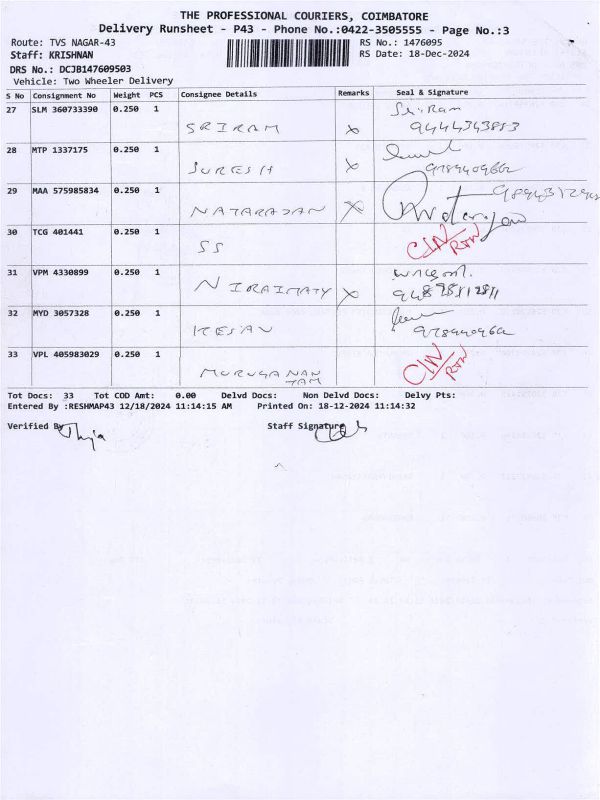 THE PROFESSIONAL COURIERS, COIMBATORE
Delivery Runsheet - P43 - Phone No.:0422-3505555 - Page No.:3
Route: TVS NAGAR-43 RS No.: 1476095
Staff: KRISHNAN RS Date: 18-Dec-2024
DRS No.: DCJB147609503
Vehicle: Two Wheeler Delivery
S No Consignment No Weight PCS Consignee Details Remarks Seal & Signature
27 SLM 360733390 0.250 1 SRIRAM X Sriram
9444343853
28 MTP 1337175 0.250 1 SURESH X
29 MAA 575985834 0.250 1 NATARAJAN X Natarajan
30 TCG 401441 0.250 1 SS CIN/RTN
31 VPM 4330899 0.250 1 NIRAIMATY X
32 MYD 3057328 0.250 1 KESAV
33 VPL 405983029 0.250 1 MURUGANAN CIN/RTN
TAM
Tot Docs: 33 Tot COD Amt: 0.00 Delvd Docs: Non Delvd Docs: Delvy Pts:
Entered By :RESHMAP43 12/18/2024 11:14:15 AM Printed On: 18-12-2024 11:14:32
Verified By Staff Signature